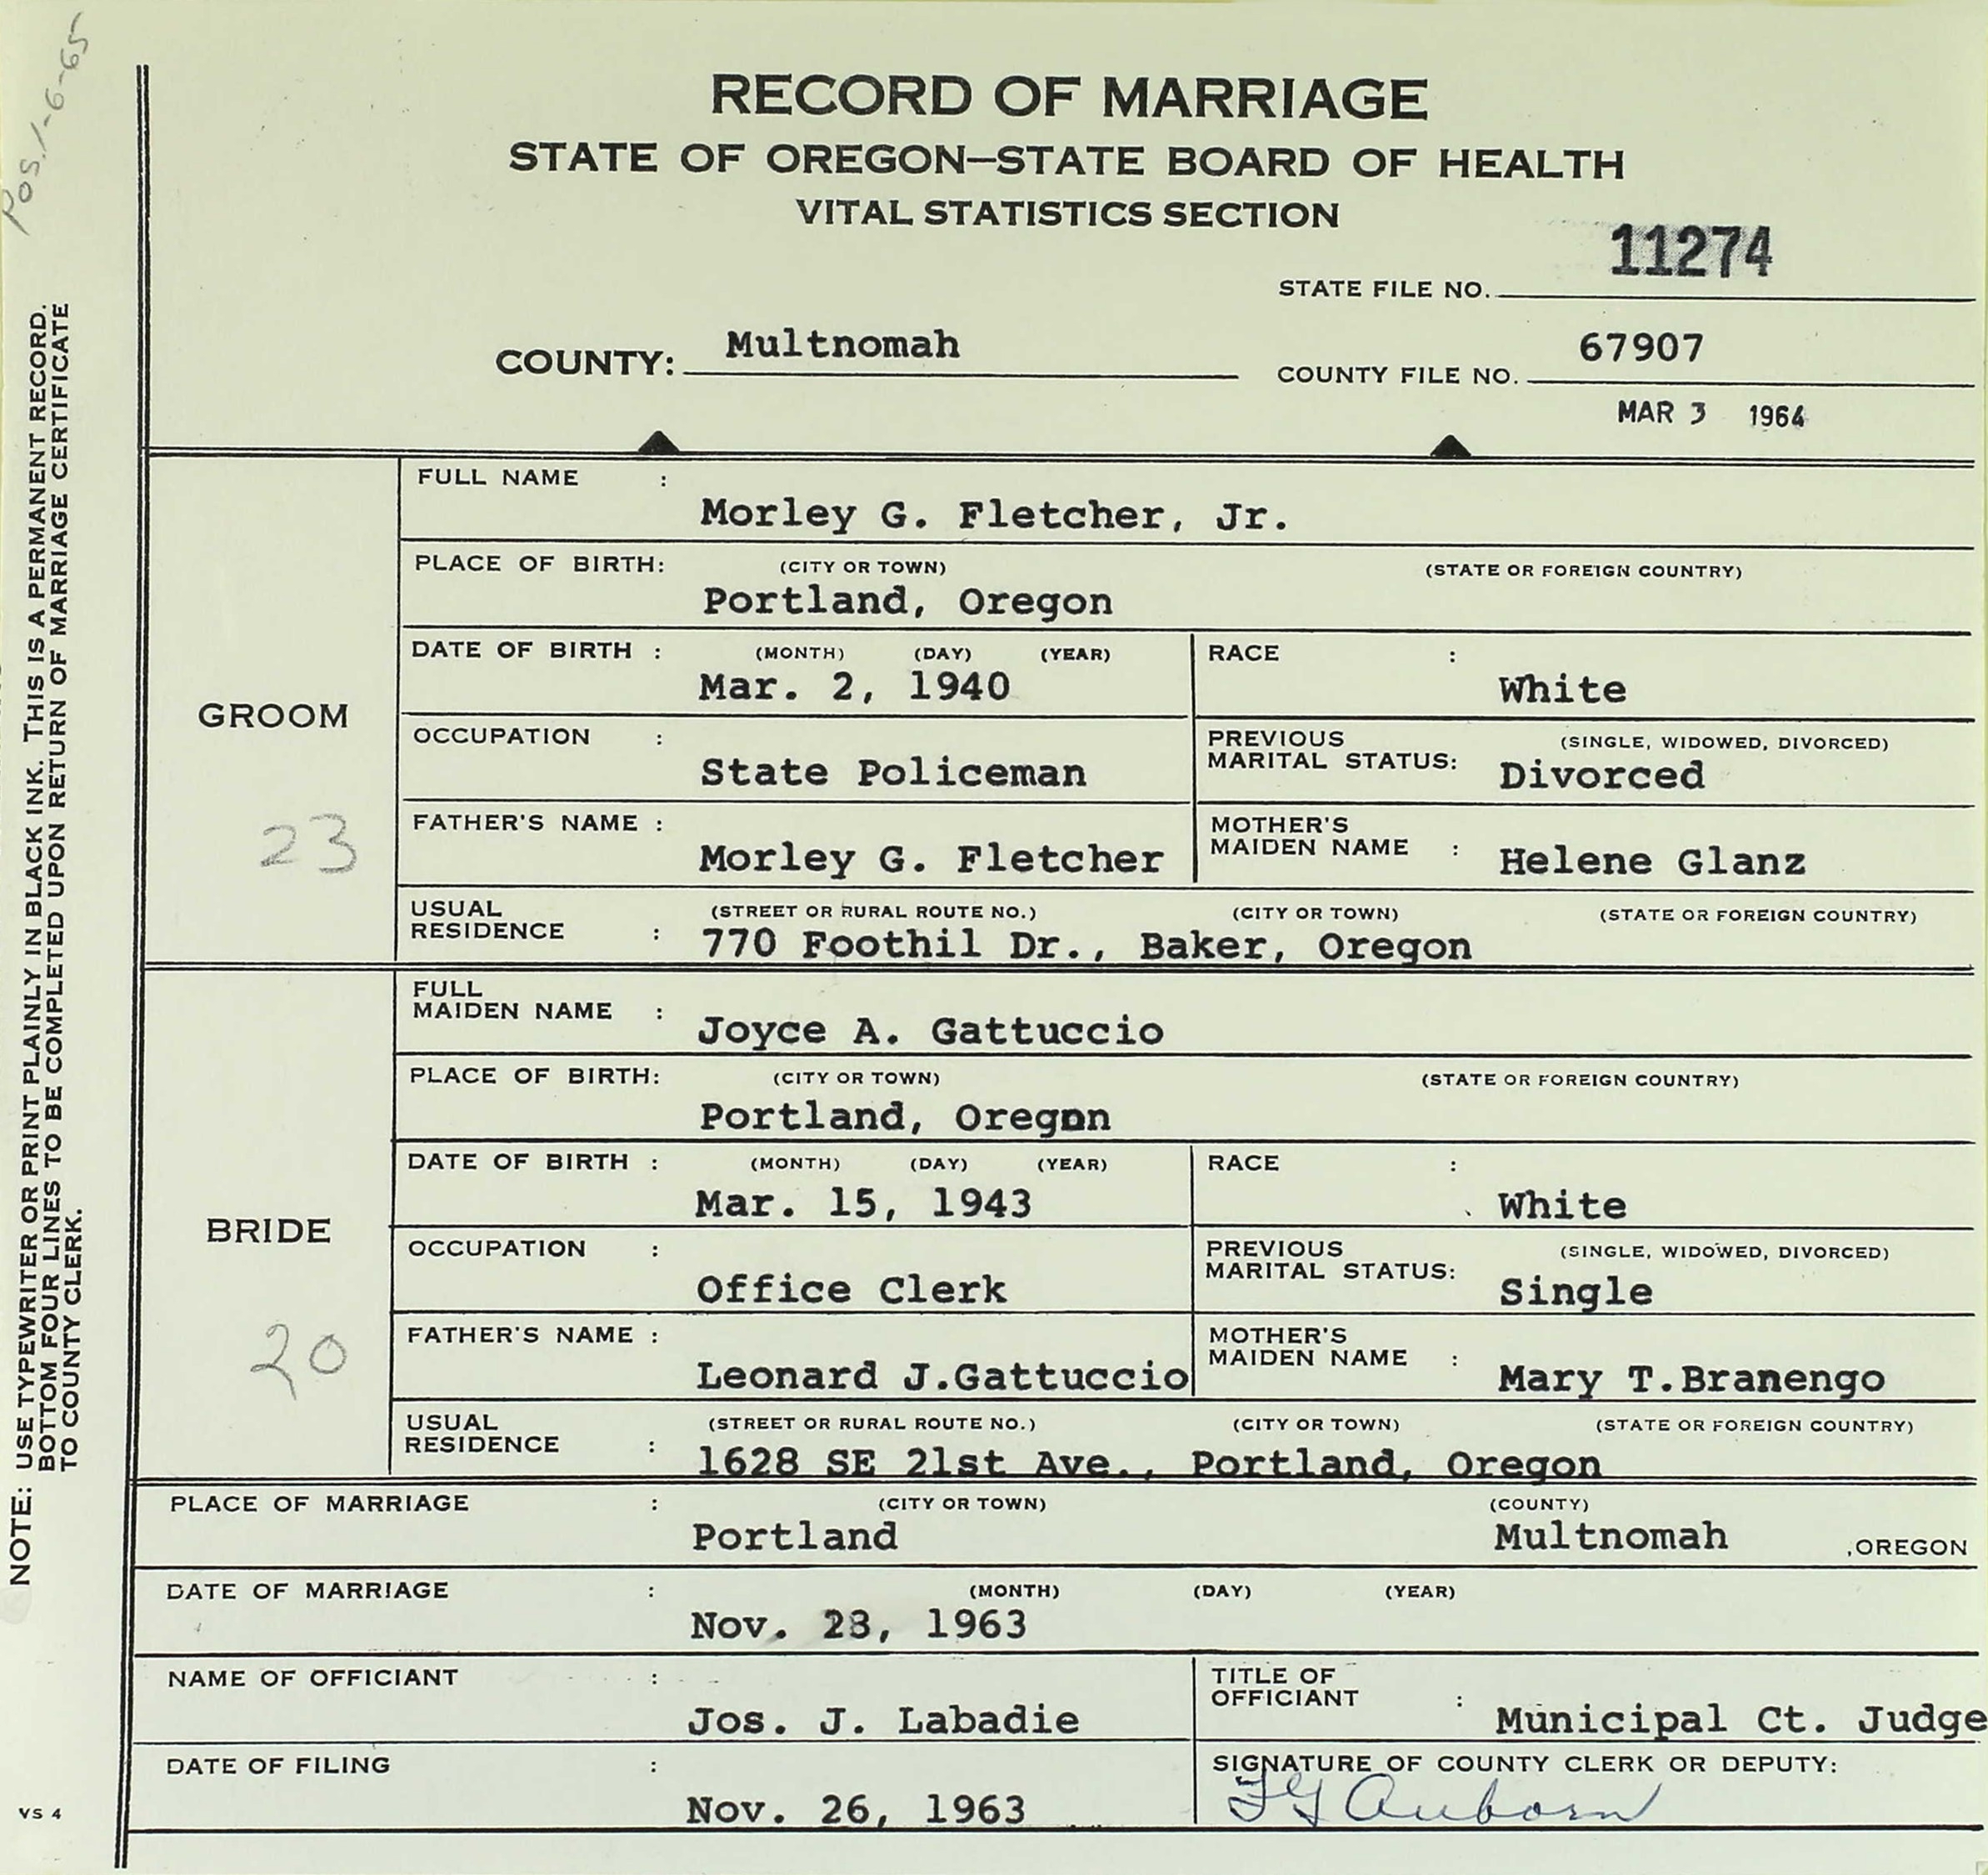 Pos. 1-6-65
RECORD OF MARRIAGE
STATE OF OREGON—STATE BOARD OF HEALTH
VITAL STATISTICS SECTION
STATE FILE NO. 11274
COUNTY: Multnomah
COUNTY FILE NO. 67907
MAR 3 1964
NOTE: USE TYPEWRITER OR PRINT PLAINLY IN BLACK INK. THIS IS A PERMANENT RECORD.
BOTTOM FOUR LINES TO BE COMPLETED UPON RETURN OF MARRIAGE CERTIFICATE
TO COUNTY CLERK.
GROOM
23
FULL NAME :
Morley G. Fletcher, Jr.
PLACE OF BIRTH: (CITY OR TOWN) (STATE OR FOREIGN COUNTRY)
Portland, Oregon
DATE OF BIRTH : (MONTH) (DAY) (YEAR)
Mar. 2, 1940
RACE :
White
OCCUPATION :
State Policeman
PREVIOUS (SINGLE, WIDOWED, DIVORCED)
MARITAL STATUS: Divorced
FATHER'S NAME :
Morley G. Fletcher
MOTHER'S
MAIDEN NAME : Helene Glanz
USUAL (STREET OR RURAL ROUTE NO.) (CITY OR TOWN) (STATE OR FOREIGN COUNTRY)
RESIDENCE : 770 Foothil Dr., Baker, Oregon
BRIDE
20
FULL
MAIDEN NAME :
Joyce A. Gattuccio
PLACE OF BIRTH: (CITY OR TOWN) (STATE OR FOREIGN COUNTRY)
Portland, Oregon
DATE OF BIRTH : (MONTH) (DAY) (YEAR)
Mar. 15, 1943
RACE :
White
OCCUPATION :
Office Clerk
PREVIOUS (SINGLE, WIDOWED, DIVORCED)
MARITAL STATUS:
Single
FATHER'S NAME :
Leonard J.Gattuccio
MOTHER'S
MAIDEN NAME :
Mary T.Branengo
USUAL (STREET OR RURAL ROUTE NO.) (CITY OR TOWN) (STATE OR FOREIGN COUNTRY)
RESIDENCE : 1628 SE 21st Ave., Portland, Oregon
PLACE OF MARRIAGE : (CITY OR TOWN) (COUNTY)
Portland Multnomah ,OREGON
DATE OF MARRIAGE : (MONTH) (DAY) (YEAR)
Nov. 23, 1963
NAME OF OFFICIANT :
Jos. J. Labadie
TITLE OF
OFFICIANT : Municipal Ct. Judge
DATE OF FILING :
Nov. 26, 1963
SIGNATURE OF COUNTY CLERK OR DEPUTY:
Auborn
VS 4